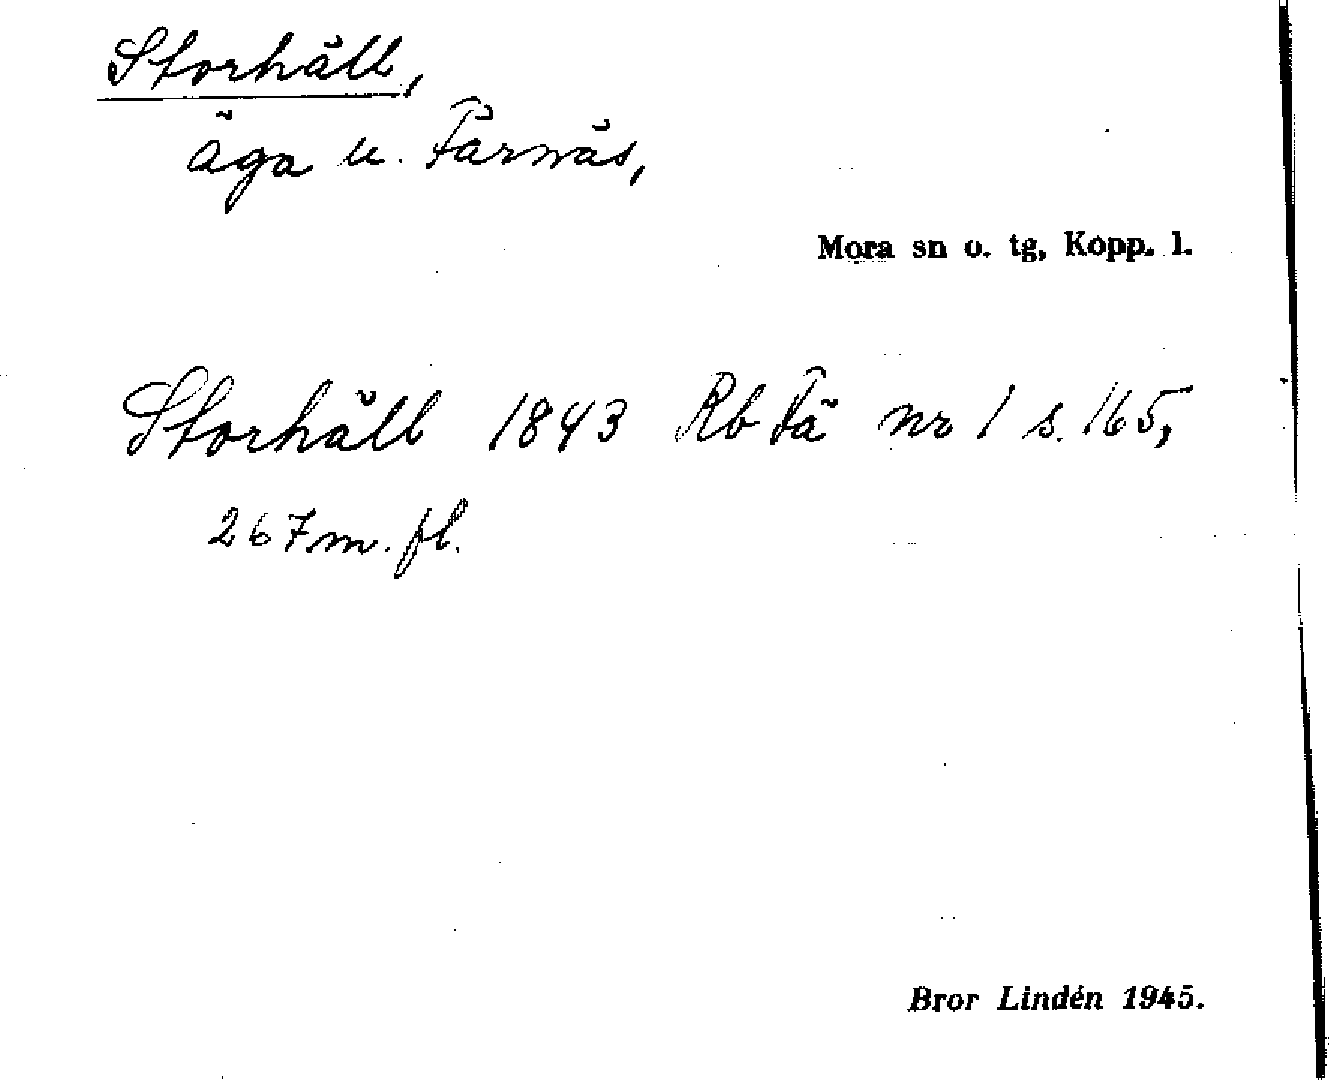 Storhäll,
äga u. Färnäs,
Mora sn o. tg, Kopp. l.
Storhäll 1843 Rb Fä nr 1 s. 165,
267 m. fl.
Bror Lindén 1945.